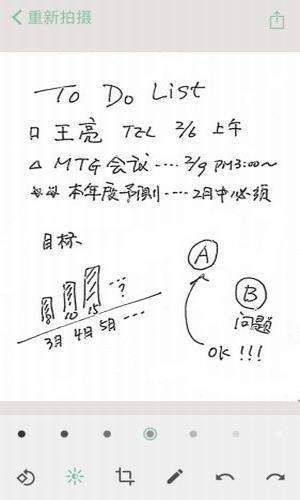 重新拍摄
To Do List
□ 王亮 TEL 2/6 上午
△ MTG 会议 ···· 2/9 PM3:00~
本年度予測 ···· 2月中必须
目标
A
···?
8 10 15
B
3月 4月 5月 ···
问题
OK !!!